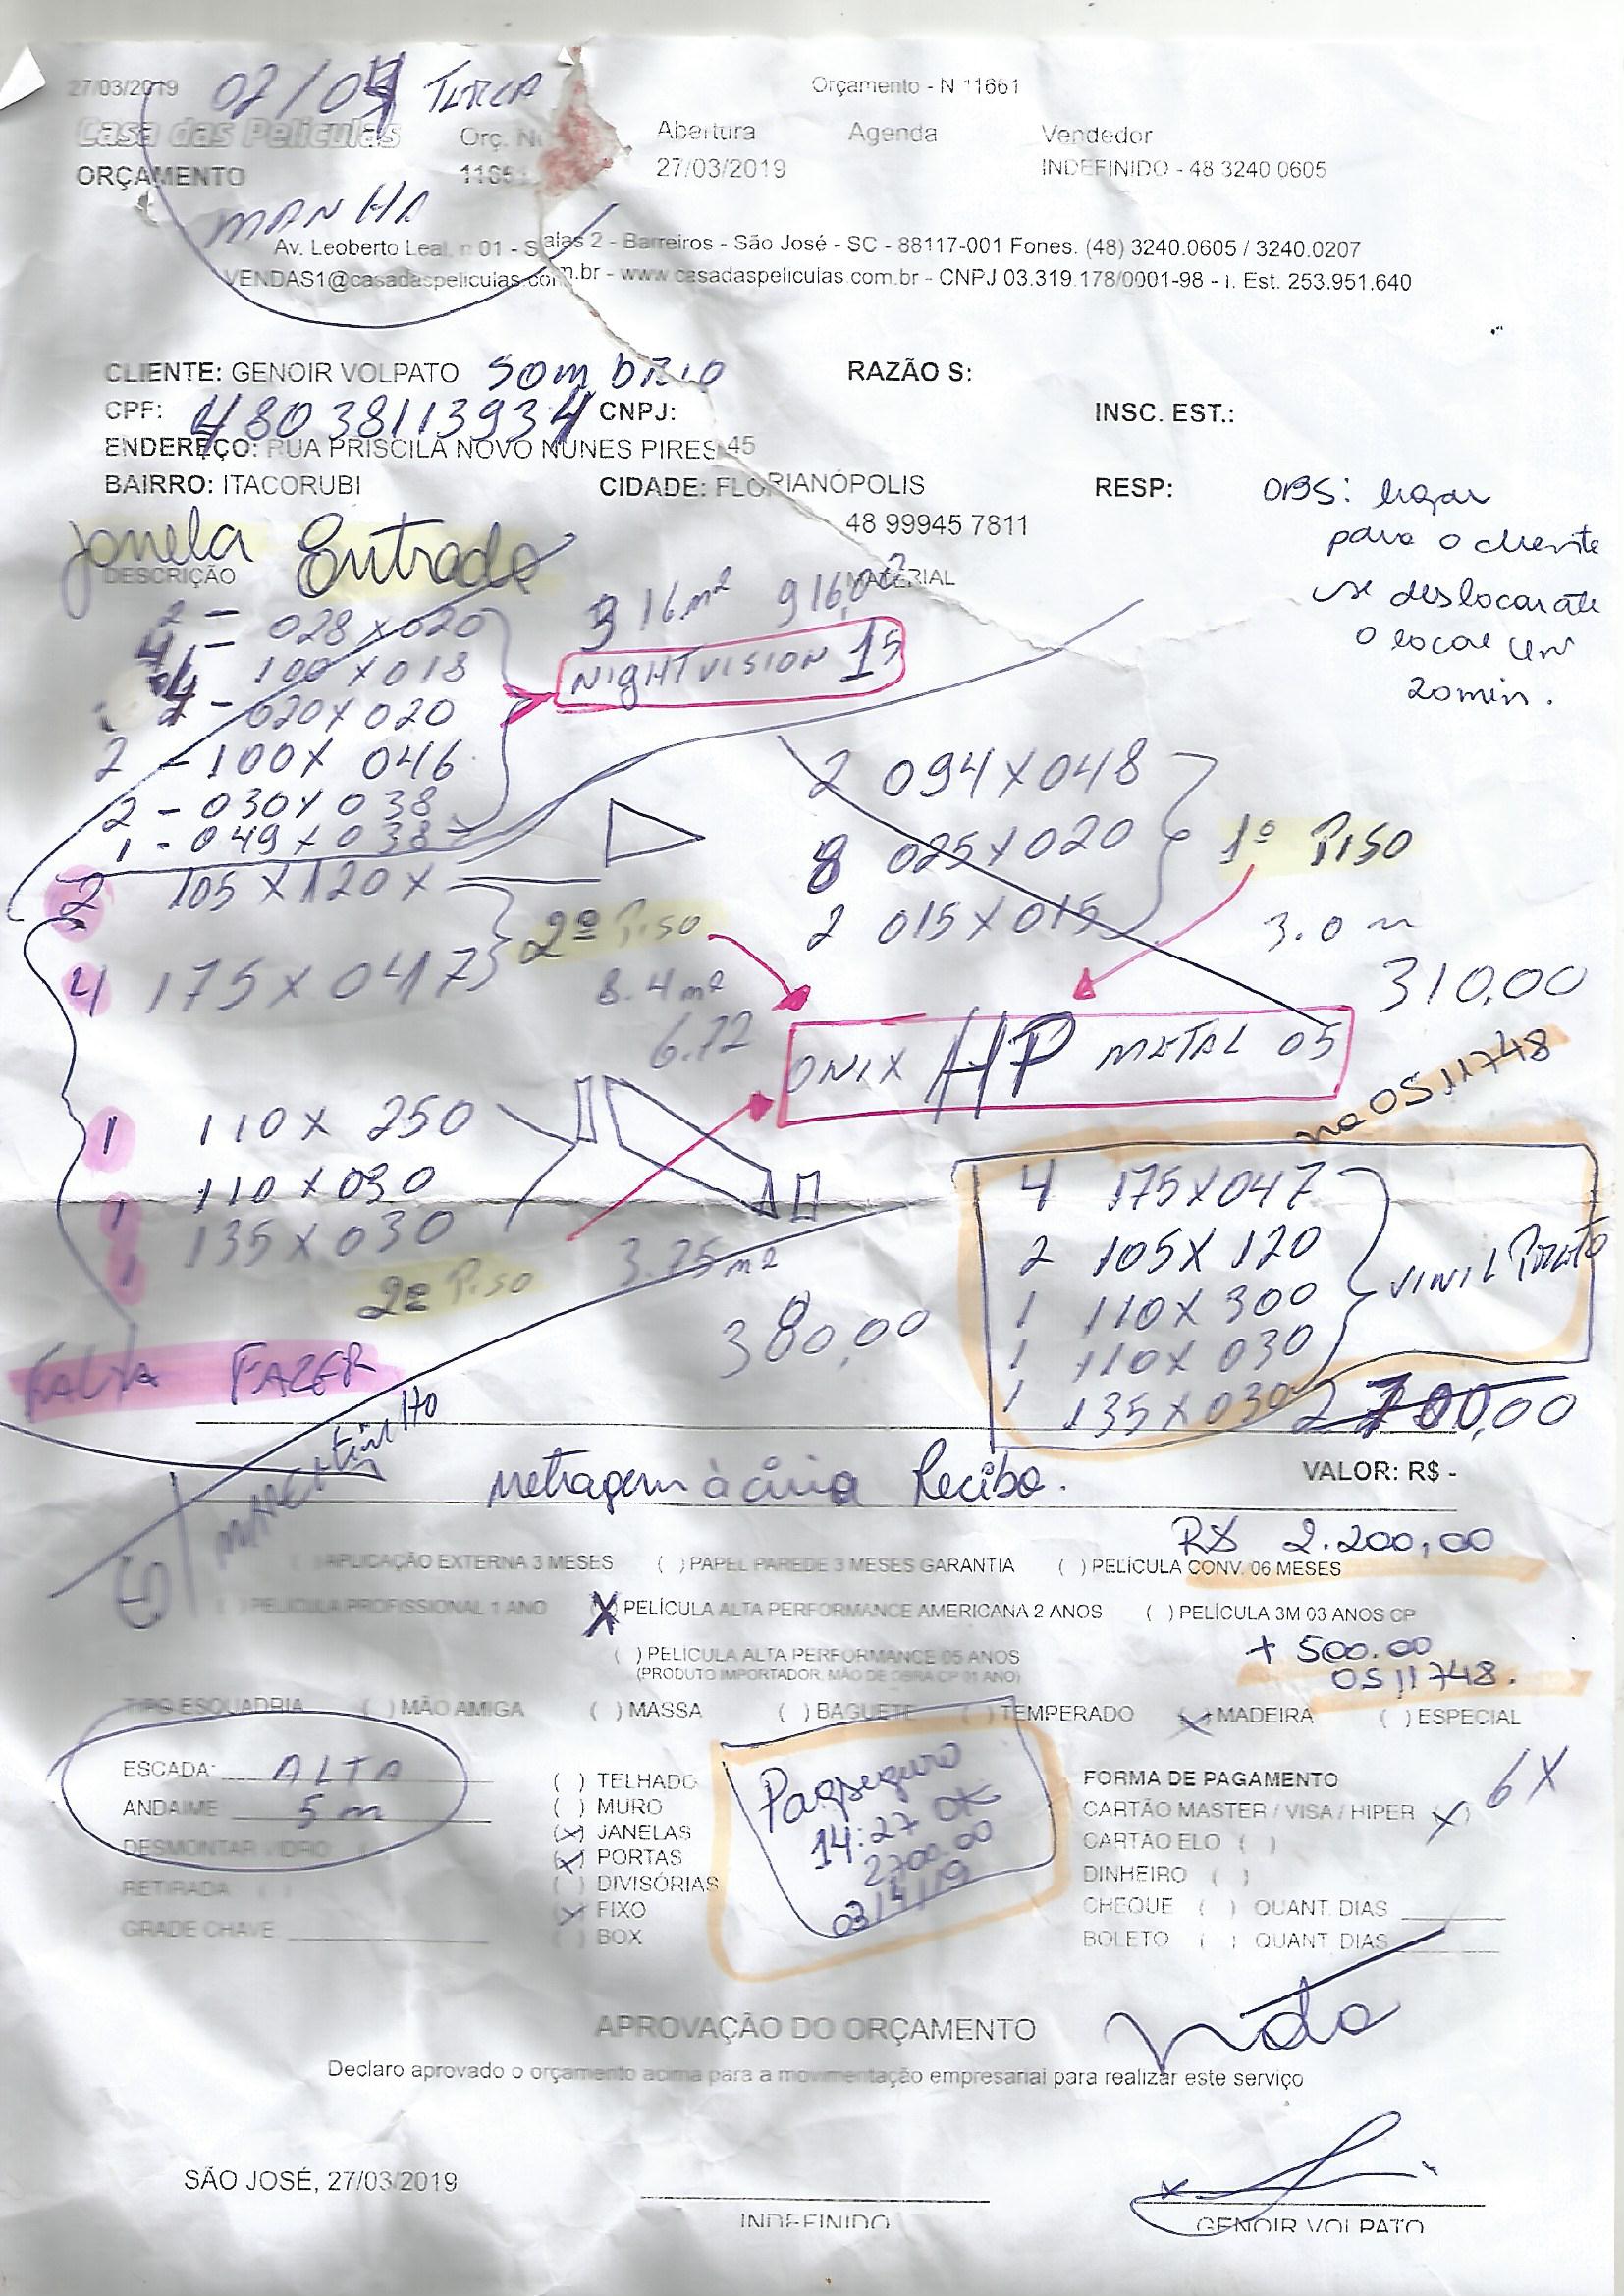 27/03/2019 02/04 TERCA Orçamento - N 11661
Casa das Películas Orç. Abertura Agenda Vendedor
ORÇAMENTO 27/03/2019 INDEFINIDO - 48 3240 0605
MANHA
Av. Leoberto Leal, n 01 - Salas 2 - Barreiros - São José - SC - 88117-001 Fones. (48) 3240.0605 / 3240.0207
VENDAS1@casadaspeliculas.com.br - www.casadaspeliculas.com.br - CNPJ 03.319.178/0001-98 - I. Est. 253.951.640
CLIENTE: GENOIR VOLPATO SOMBRIO RAZÃO S:
CPF: 48038113934 CNPJ: INSC. EST.:
ENDEREÇO: RUA PRISCILA NOVO NUNES PIRES 45
BAIRRO: ITACORUBI CIDADE: FLORIANÓPOLIS RESP:
48 99945 7811
OBS: ligar
para o cliente
se deslocar ate
o local em
20min.
Janela Entrada
DESCRIÇÃO MATERIAL
2 - 028 x 020
4 - 100 x 018
020 x 020
2 - 100 X 046
2 - 030 x 038
1 - 049 x 038
916,00
NIGHTVISION 15
2 094 X 048
8 025 X 020
2 015 X 015
1º PISO
3.0 m
310,00
2 105 X 120 X
4 175 X 047
2º PISO
8.4 m²
6.72
ONIX HP METAL 05
1 110 X 250
1 110 X 030
1 135 X 030
2º PISO
3.75 m²
380,00
FALTA FAZER
na OS 11748
4 175 X 047
2 105 X 120
1 110 X 300
1 110 X 030
1 135 X 030
VINIL PRETO
2700,00
metragem à cima Recibo.
VALOR: R$ -
R$ 2.200,00
( ) APLICAÇÃO EXTERNA 3 MESES ( ) PAPEL PAREDE 3 MESES GARANTIA ( ) PELÍCULA CONV. 06 MESES
( ) PELÍCULA PROFISSIONAL 1 ANO (X) PELÍCULA ALTA PERFORMANCE AMERICANA 2 ANOS ( ) PELÍCULA 3M 03 ANOS CP
( ) PELÍCULA ALTA PERFORMANCE 05 ANOS
(PRODUTO IMPORTADOR, MÃO DE OBRA CP 01 ANO)
+ 500.00
OS 11748.
TIPO ESQUADRIA ( ) MÃO AMIGA ( ) MASSA ( ) BAGUETE ( ) TEMPERADO (X) MADEIRA ( ) ESPECIAL
ESCADA: ALTA
ANDAIME 5 m
DESMONTAR VIDRO
RETIRADA ( )
GRADE CHAVE
( ) TELHADO
( ) MURO
(X) JANELAS
(X) PORTAS
( ) DIVISÓRIAS
(X) FIXO
( ) BOX
Pagseguro
14:27 OK
2700.00
03/4/19
FORMA DE PAGAMENTO 6X
CARTÃO MASTER / VISA / HIPER (X)
CARTÃO ELO ( )
DINHEIRO ( )
CHEQUE ( ) QUANT. DIAS
BOLETO ( ) QUANT. DIAS
APROVAÇÃO DO ORÇAMENTO nota
Declaro aprovado o orçamento acima para a movimentação empresarial para realizar este serviço
SÃO JOSÉ, 27/03/2019
INDEFINIDO GENOIR VOLPATO